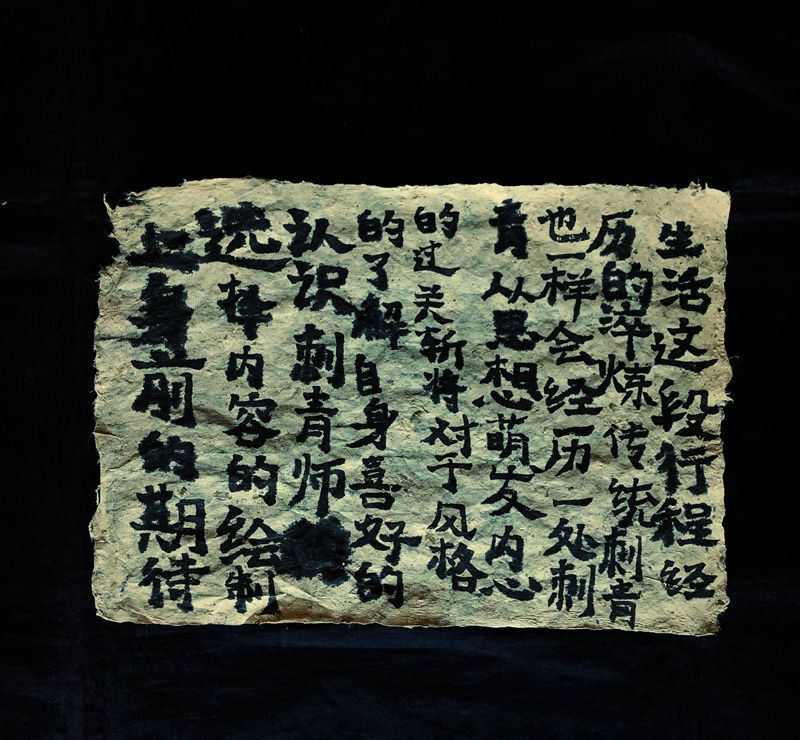 生活这段行程经
历的淬炼传统刺青
也一样会经历一处刺
青从思想萌发内心
的过关斩将对于风格
的了解自身喜好的
认识刺青师
选择内容的绘制
上身前的期待